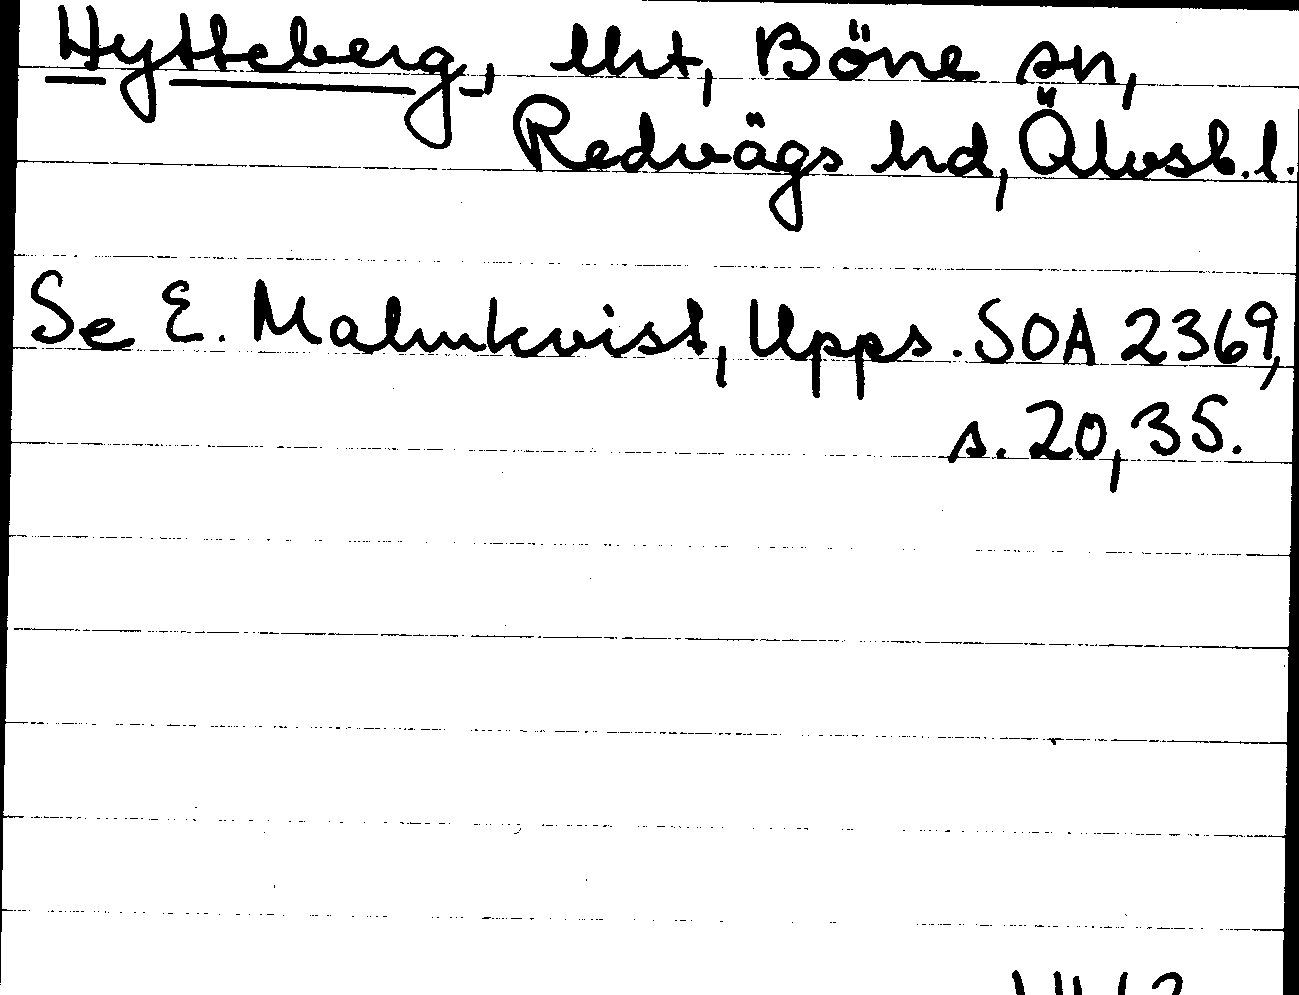 Hytteberg, lht, Böne sn,
Redvägs hd, Älvsb.l.
Se E. Malmkvist, Upps. SOA 2369,
s. 20, 35.